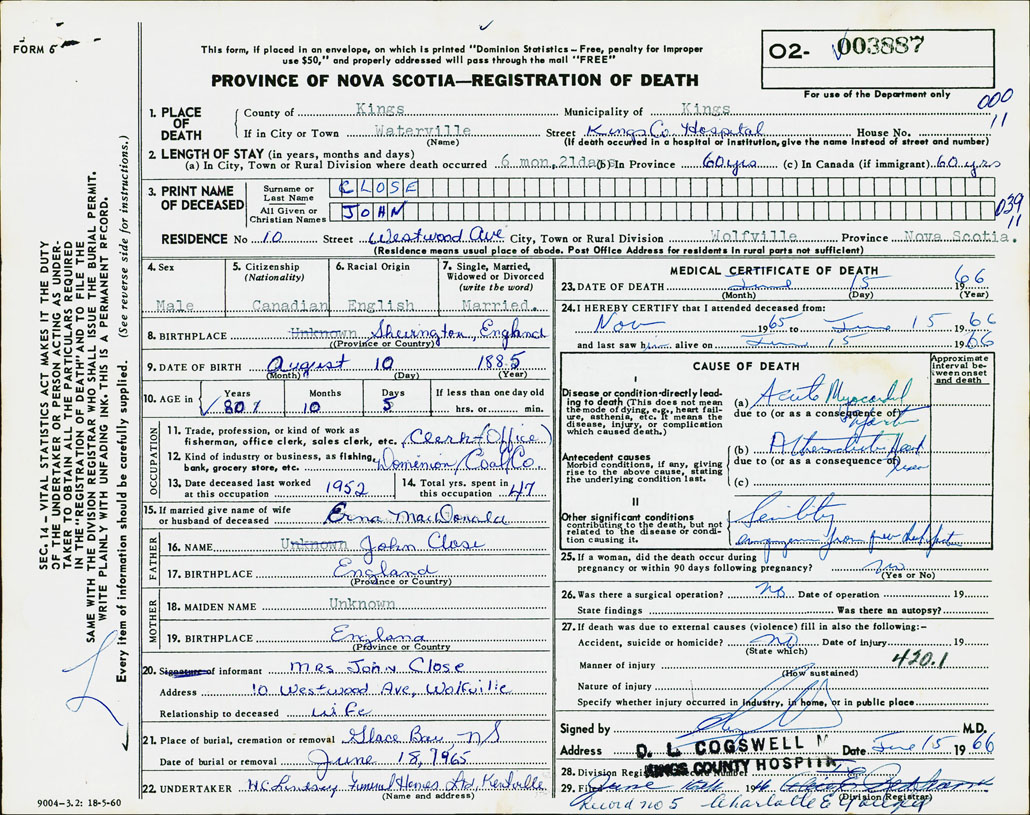 FORM 5
This form, if placed in an envelope, on which is printed "Dominion Statistics – Free, penalty for improper
use $50," and properly addressed will pass through the mail "FREE"
PROVINCE OF NOVA SCOTIA—REGISTRATION OF DEATH
O2- 003887
For use of the Department only
000
11
SEC. 14 – VITAL STATISTICS ACT MAKES IT THE DUTY
OF THE UNDERTAKER OR PERSON ACTING AS UNDER-
TAKER TO OBTAIN ALL THE PARTICULARS REQUIRED
IN THE "REGISTRATION OF DEATH" AND TO FILE THE
SAME WITH THE DIVISION REGISTRAR WHO SHALL ISSUE THE BURIAL PERMIT.
WRITE PLAINLY WITH UNFADING INK. THIS IS A PERMANENT RECORD.
Every item of information should be carefully supplied. (See reverse side for instructions.)
1. PLACE OF DEATH
County of Kings Municipality of Kings
If in City or Town Waterville Street Kings Co. Hospital House No.
(Name) (If death occurred in a hospital or institution, give the name instead of street and number)
2. LENGTH OF STAY (in years, months and days)
(a) In City, Town or Rural Division where death occurred 6 mon, 21 days (b) In Province 60 yrs (c) In Canada (if immigrant) 60 yrs
3. PRINT NAME OF DECEASED
Surname or Last Name CLOSE
All Given or Christian Names JOHN
039
11
RESIDENCE No 10 Street Westwood Ave City, Town or Rural Division Wolfville Province Nova Scotia.
(Residence means usual place of abode. Post Office Address for residents in rural parts not sufficient)
4. Sex
Male
5. Citizenship (Nationality)
Canadian
6. Racial Origin
English
7. Single, Married, Widowed or Divorced (write the word)
Married.
8. BIRTHPLACE Unknown England
(Province or Country)
9. DATE OF BIRTH August 10 1885
(Month) (Day) (Year)
10. AGE in Years Months Days If less than one day old
80 10 5 hrs. or min.
OCCUPATION
11. Trade, profession, or kind of work as
fisherman, office clerk, sales clerk, etc. (Clerk-Office)
12. Kind of industry or business, as fishing,
bank, grocery store, etc. Dominion Coal Co.
13. Date deceased last worked
at this occupation 1952
14. Total yrs. spent in
this occupation 47
15. If married give name of wife
or husband of deceased Erna MacDonald
FATHER
16. NAME Unknown John Close
17. BIRTHPLACE England
(Province or Country)
MOTHER
18. MAIDEN NAME Unknown
19. BIRTHPLACE England
(Province or Country)
20. Signature of informant Mrs John Close
Address 10 Westwood Ave, Wolfville
Relationship to deceased wife
21. Place of burial, cremation or removal Glace Bay, NS
Date of burial or removal June 18, 1965
22. UNDERTAKER Funeral Homes Ltd, Kentville
(Name and address)
9004-3.2: 18-5-60
MEDICAL CERTIFICATE OF DEATH
23. DATE OF DEATH June 15 1966
(Month) (Day) (Year)
24. I HEREBY CERTIFY that I attended deceased from:
Nov 1965 to June 15 1966
and last saw him alive on June 15 1966
CAUSE OF DEATH
Approximate interval between onset and death
I
Disease or condition directly leading to death (This does not mean
the mode of dying, e.g., heart failure, asthenia, etc. It means the
disease, injury, or complication
which caused death.)
(a) Acute Myocardial
due to (or as a consequence of)
Antecedent causes
Morbid conditions, if any, giving
rise to the above cause, stating
the underlying condition last.
(b) Heart
due to (or as a consequence of)
(c)
II
Other significant conditions
contributing to the death, but not
related to the disease or condition causing it.
Senility
25. If a woman, did the death occur during
pregnancy or within 90 days following pregnancy? no
(Yes or No)
26. Was there a surgical operation? no Date of operation 19
State findings Was there an autopsy?
27. If death was due to external causes (violence) fill in also the following:–
Accident, suicide or homicide? no Date of injury 19
(State which)
420.1
Manner of injury
(How sustained)
Nature of injury
Specify whether injury occurred in industry, in home, or in public place
Signed by M.D.
Address D. L. COGSWELL M Date June 15 1966
KINGS COUNTY HOSPITAL
28. Division Registrar's Record Number
29. Filed June
(Division Registrar)
Record no 5 Charlotte E